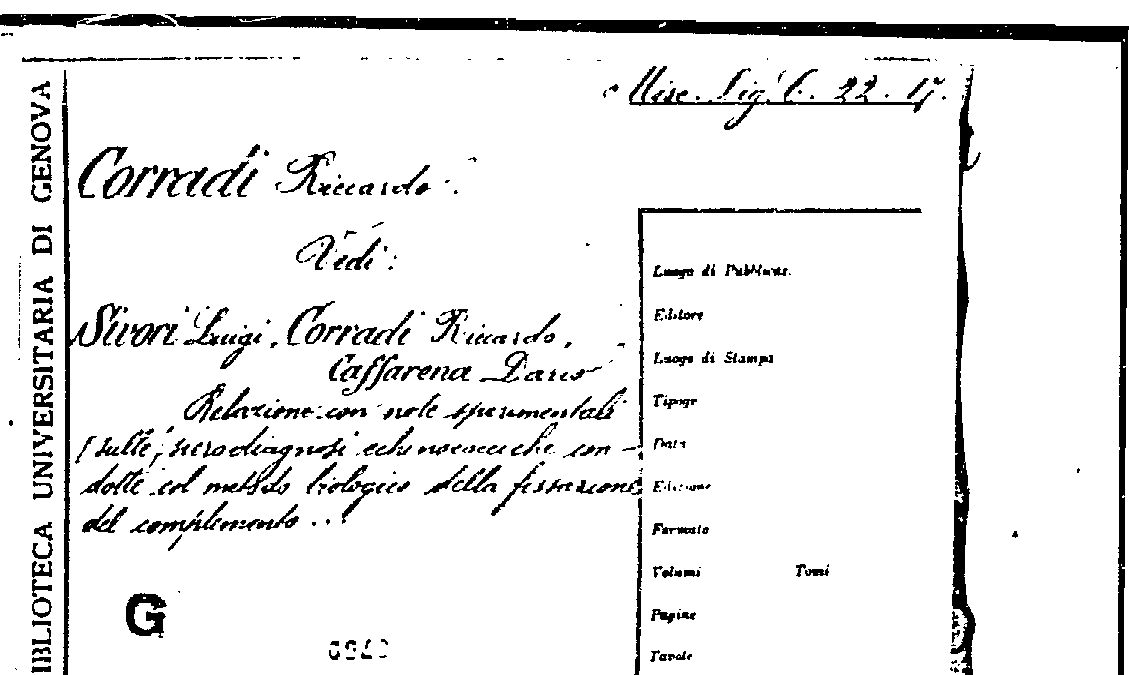 BIBLIOTECA UNIVERSITARIA DI GENOVA
Misc. Lig. C. 22. 17.
Corradi Riccardo.
Vedi:
Sivori Luigi, Corradi Riccardo,
Caffarena Dario
Relazione con note sperimentali
sulle sierodiagnosi echinococciche con-
dotte col metodo biologico della fissazione
del complemento...
Luogo di Pubblicaz.
Editore
Luogo di Stampa
Tipogr
Data
Edizione
Formato
Volumi Tomi
Pagine
Tavole
G